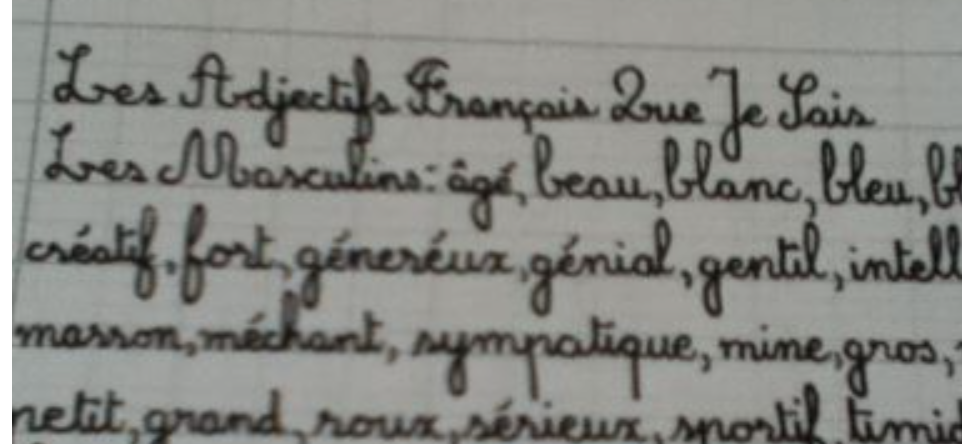 Les Adjectifs Français Que Je Sais
Les Masculins: âgé, beau, blanc, bleu, bl
créatif, fort, géneréux, génial, gentil, intell
marron, méchant, sympatique, mine, gros,
petit, grand, roux, sérieux, sportif timid